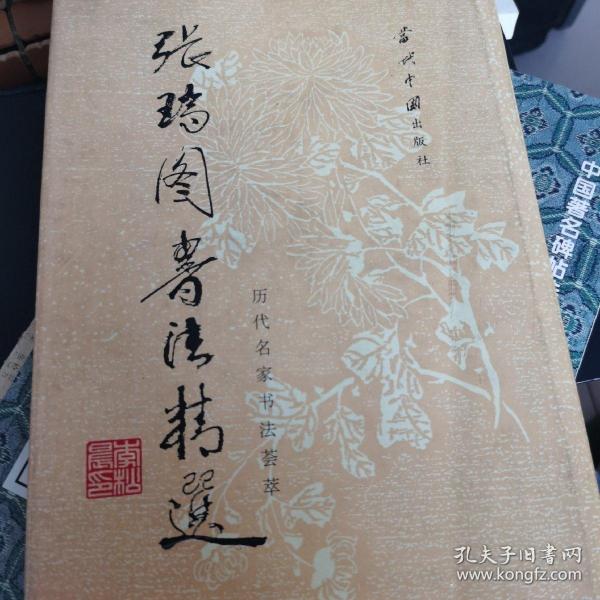 张瑞图书法精選
历代名家书法荟萃
當代中國出版社
中国著名碑帖
孔夫子旧书网
www.kongfz.com